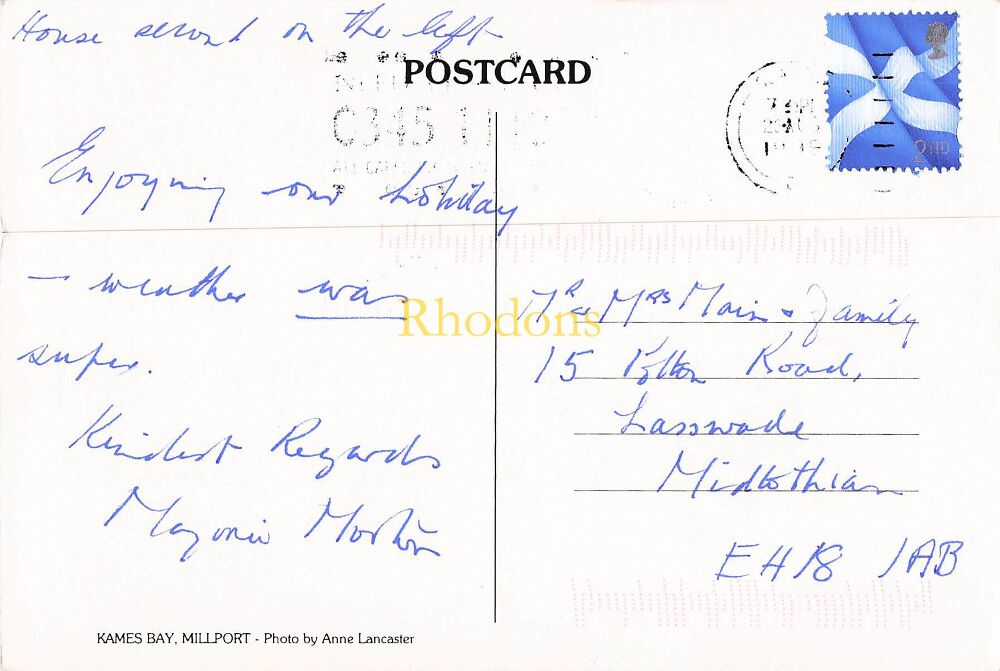 House second on the left
POSTCARD
C345
2ND
Enjoying our holiday
- weather was
super.
Kindest Regards
Marjorie Morton
Mr & Mrs Main & Family
15 Polton Road,
Lasswade
Midlothian
EH18 1AB
Rhodons
KAMES BAY, MILLPORT - Photo by Anne Lancaster